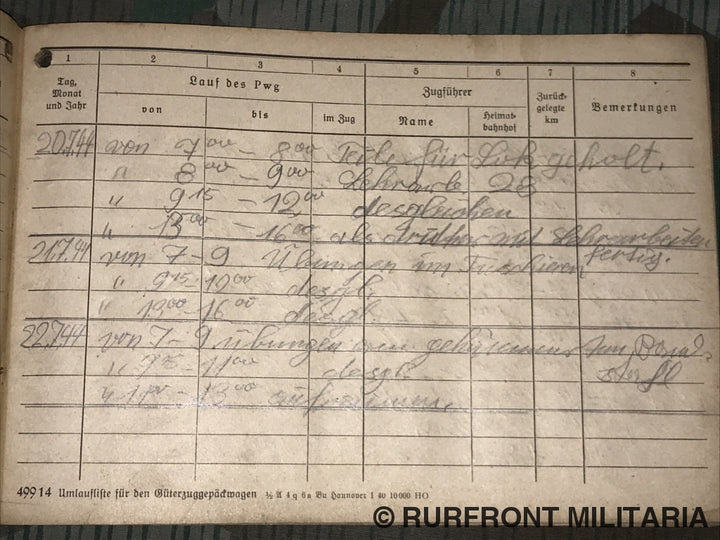 1 2 3 4 5 6 7 8
Tag, Monat und Jahr
Lauf des Pwg
von bis im Zug
Zugführer
Name Heimatbahnhof
Zurückgelegte km
Bemerkungen
20.7.44 von 7 00 - 8 00 Teile für Lok geholt.
" 8 00 - 9 00 28
" 9 15 - 12 00 desgleichen
" 13 00 - 16 00 als mit Lehrarbeiten fertig.
21.7.44 von 7 - 9 Übungen im
" 9 15 - 12 00 desgl.
" 13 00 - 16 00 desgl.
22.7.44 von 7 - 9 Übungen
" 9 15 - 11 00 desgl.
" - 13 00 aufräumen
499 14 Umlaufliste für den Güterzuggepäckwagen ½ A 4 q 6a Bu Hannover I 40 10 000 HO
© RURFRONT MILITARIA